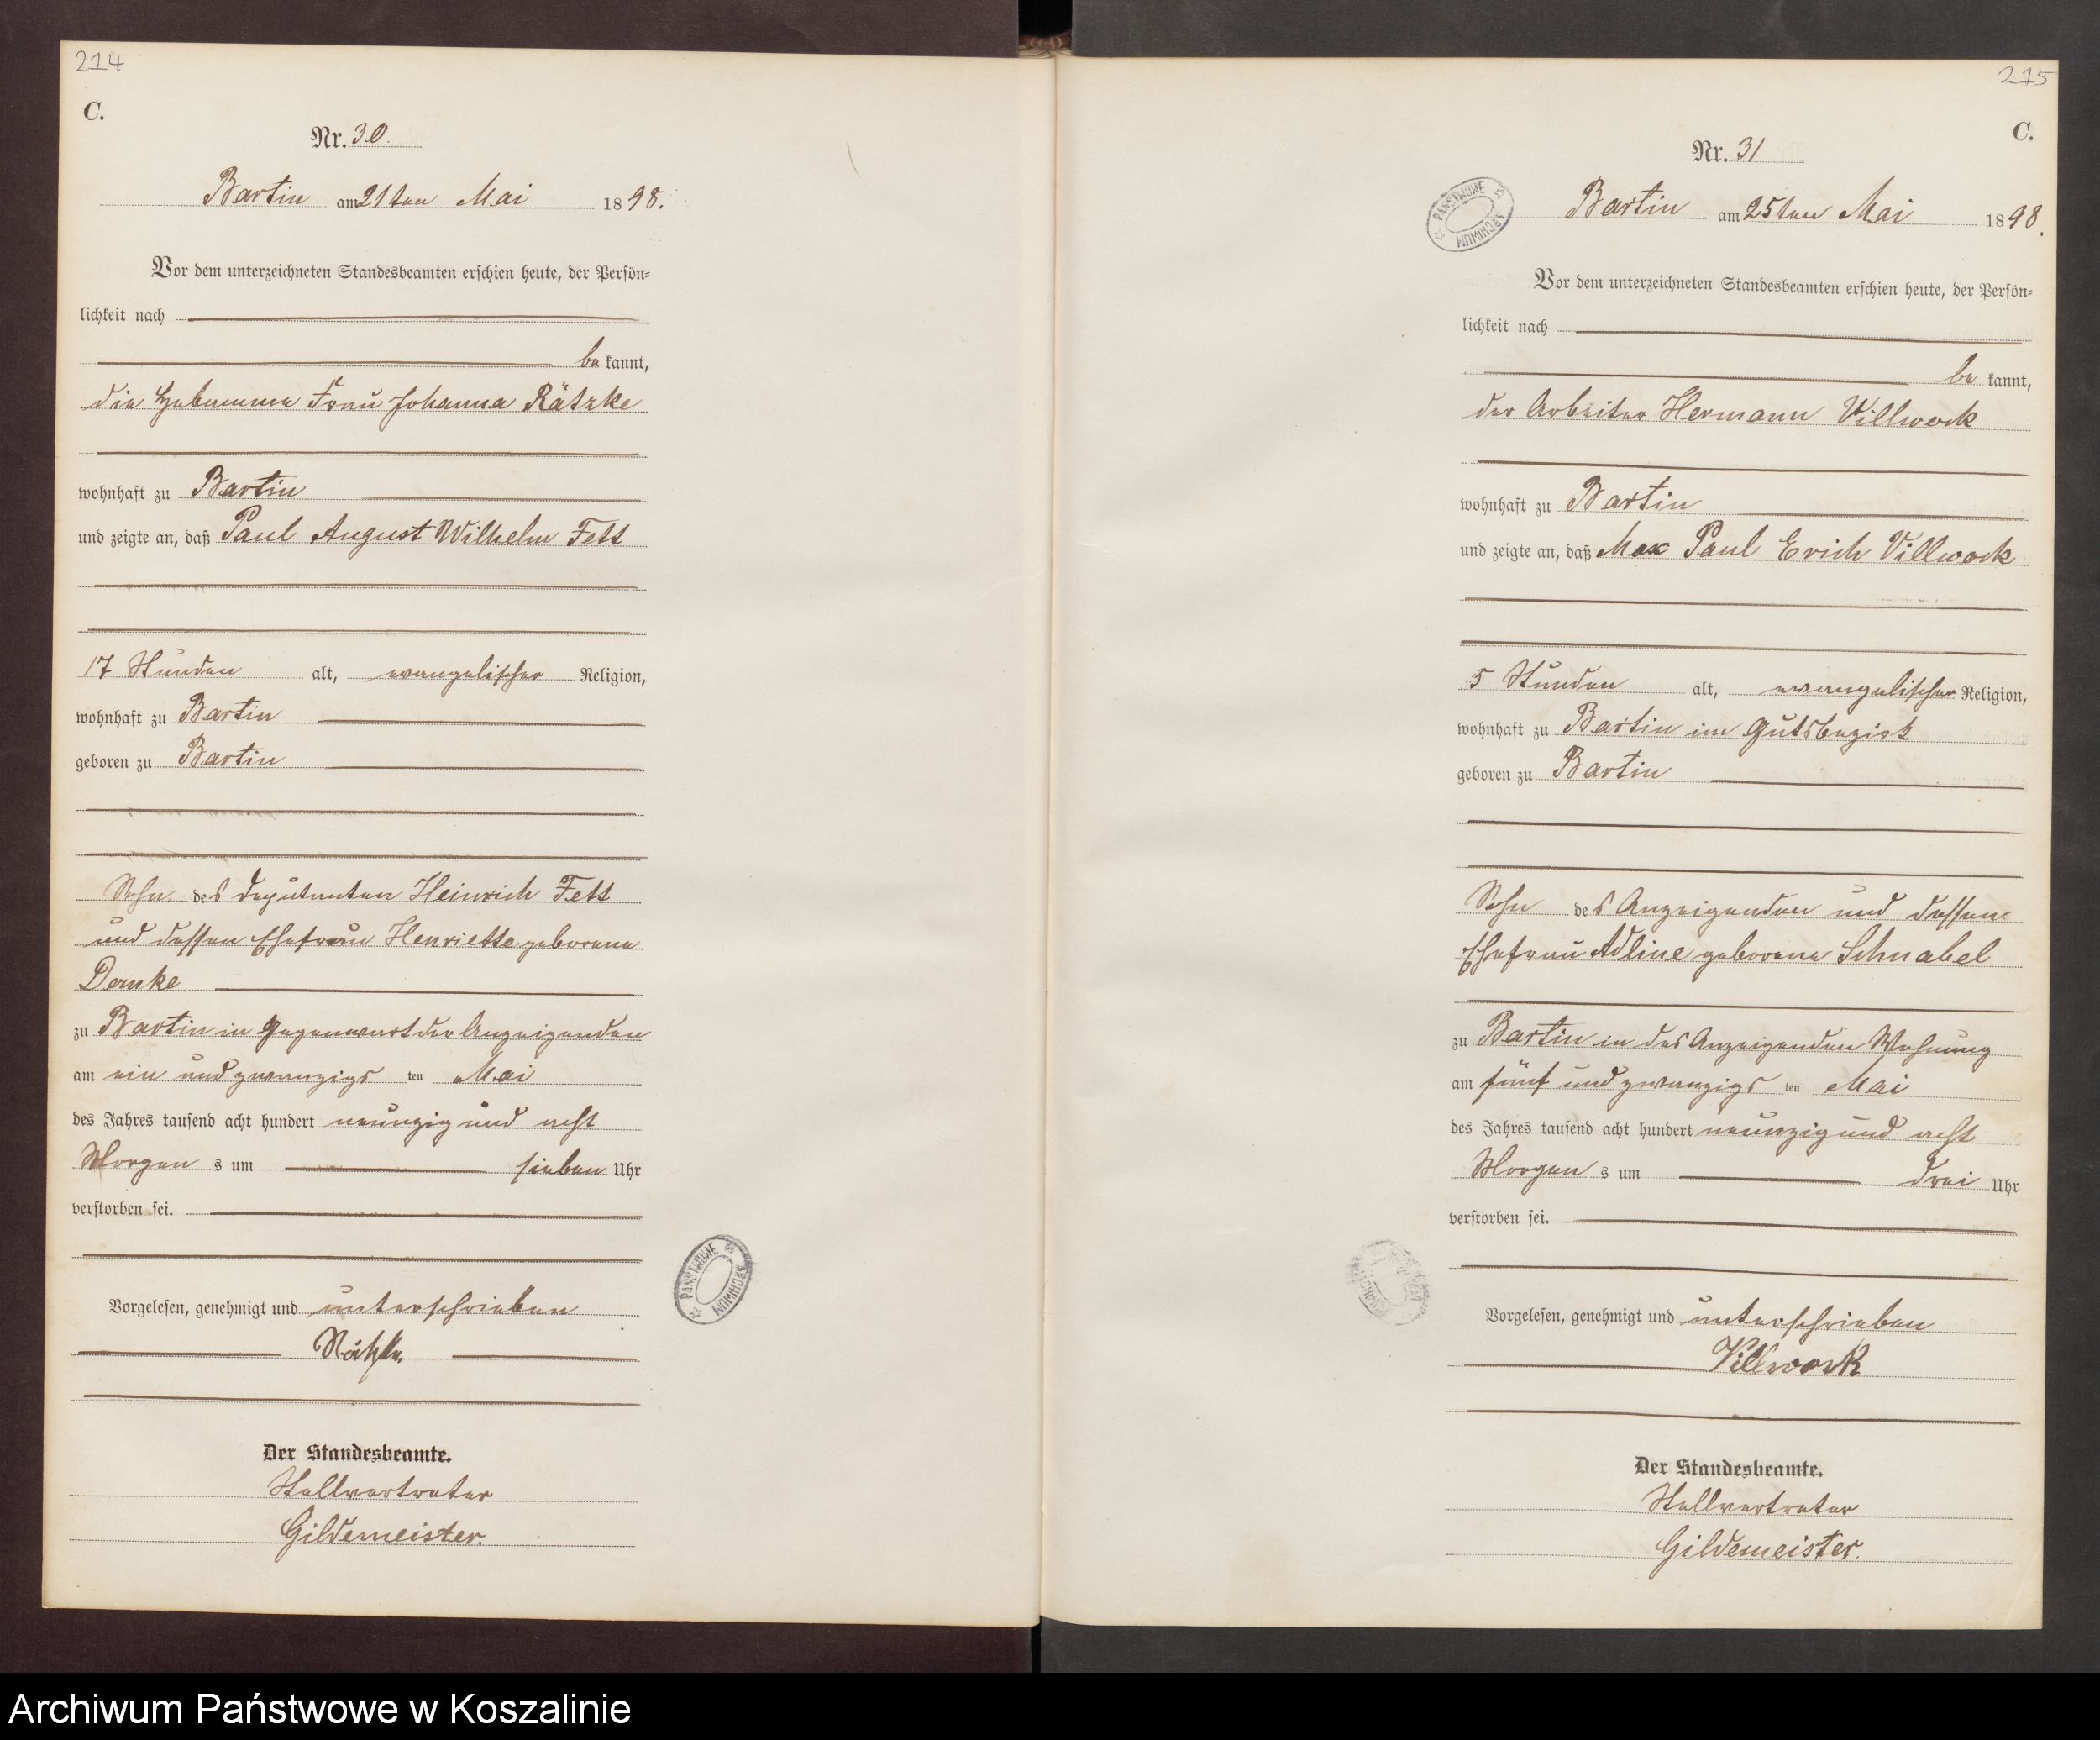 214
C.
Nr. 30.
Bartin am 21ten Mai 1898.
Vor dem unterzeichneten Standesbeamten erschien heute, der Persön-
lichkeit nach
be kannt,
die Hebamme Frau Johanna Rätzke
wohnhaft zu Bartin
und zeigte an, daß Paul August Wilhelm Fett
17 Stunden alt, evangelischer Religion,
wohnhaft zu Bartin
geboren zu Bartin
Sohn des Deputanten Heinrich Fett
und dessen Ehefrau Henriette geborene
Demke
zu Bartin in Gegenwart der Anzeigenden
am ein und zwanzigs ten Mai
des Jahres tausend acht hundert neunzig und acht
Morgen s um sieben Uhr
verstorben sei.
Vorgelesen, genehmigt und unterschrieben
Rätzke
Der Standesbeamte.
Stellvertreter
Gildemeister.
PAŃSTWOWE ARCHIWUM
215
C.
Nr. 31
PAŃSTWOWE ARCHIWUM
Bartin am 25ten Mai 1898.
Vor dem unterzeichneten Standesbeamten erschien heute, der Persön-
lichkeit nach
be kannt,
der Arbeiter Hermann Villwock
wohnhaft zu Bartin
und zeigte an, daß Max Paul Erich Villwock
5 Stunden alt, evangelischer Religion,
wohnhaft zu Bartin im Gutsbezirk
geboren zu Bartin
Sohn des Anzeigenden und dessen
Ehefrau Adline geborene Schnabel
zu Bartin in des Anzeigenden Wohnung
am fünf und zwanzigs ten Mai
des Jahres tausend acht hundert neunzig und acht
Morgen s um drei Uhr
verstorben sei.
Vorgelesen, genehmigt und unterschrieben
Villwock
Der Standesbeamte.
Stellvertreter
Gildemeister.
Archiwum Państwowe w Koszalinie